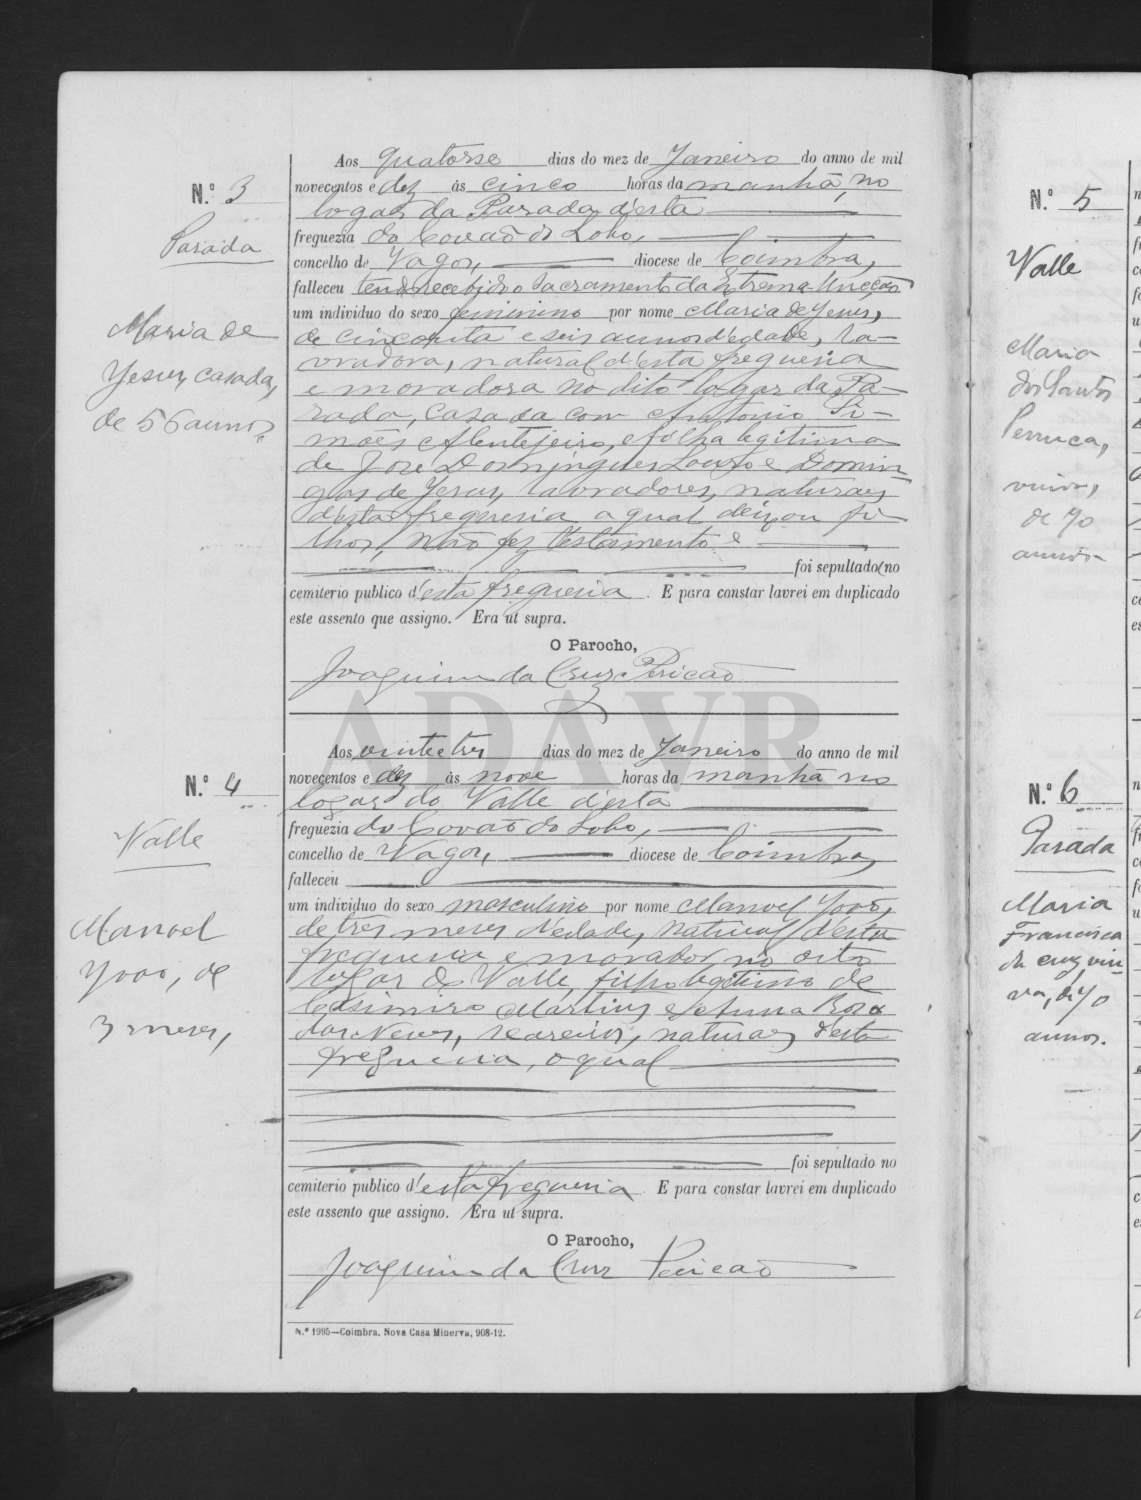 N.º 3
Parada
Maria de
Jesus, casada,
de 56 annos
Aos quatorse dias do mez de Janeiro do anno de mil
novecentos e dez ás cinco horas da manhã, no
logar da Parada d'esta
freguezia do Covaõ do Lobo,
concelho de Vagos, diocese de Coimbra,
falleceu tendo recebido o Sacramento da Extrema Uncção
um individuo do sexo feminino por nome Maria de Jesus,
de cincoenta e seis annos d'edade, la-
vradora, natural d'esta freguesia
e moradora no dito logar da Pa-
rada, casada com Antonio Si-
mões Alentejeiro, e filha legitima
de José Domingues Louro e Domin-
gas de Jesus, lavradores, naturaes
d'esta freguesia a qual deixou fi-
lhos, não fez testamento e
foi sepultado no
cemiterio publico d'esta freguesia. E para constar lavrei em duplicado
este assento que assigno. Era ut supra.
O Parocho,
Joaquim da Cruz Pericaõ
ADAVR
N.º 4
Valle
Manoel
Joaõ, de
3 meses,
Aos vinte e tres dias do mez de Janeiro do anno de mil
novecentos e dez ás nove horas da manhã no
logar do Valle d'esta
freguezia do Covaõ do Lobo,
concelho de Vagos, diocese de Coimbra,
falleceu
um individuo do sexo masculino por nome Manoel Joaõ,
de tres meses d'edade, natural d'esta
freguesia e morador no dito
logar do Valle, filho legitimo de
Casimiro Martins e Anna Rosa
das Neves, seareiros, naturaes d'esta
freguesia, o qual
foi sepultado no
cemiterio publico d'esta freguesia. E para constar lavrei em duplicado
este assento que assigno. Era ut supra.
O Parocho,
Joaquim da Cruz Pericaõ
N.º 1995—Coimbra, Nova Casa Minerva, 908-12.
N.º 5
Valle
Maria
dos Santos
viuva,
de 70
annos
N.º 6
Parada
Maria
Francisca
da Cruz, viu-
va, de 70
annos.